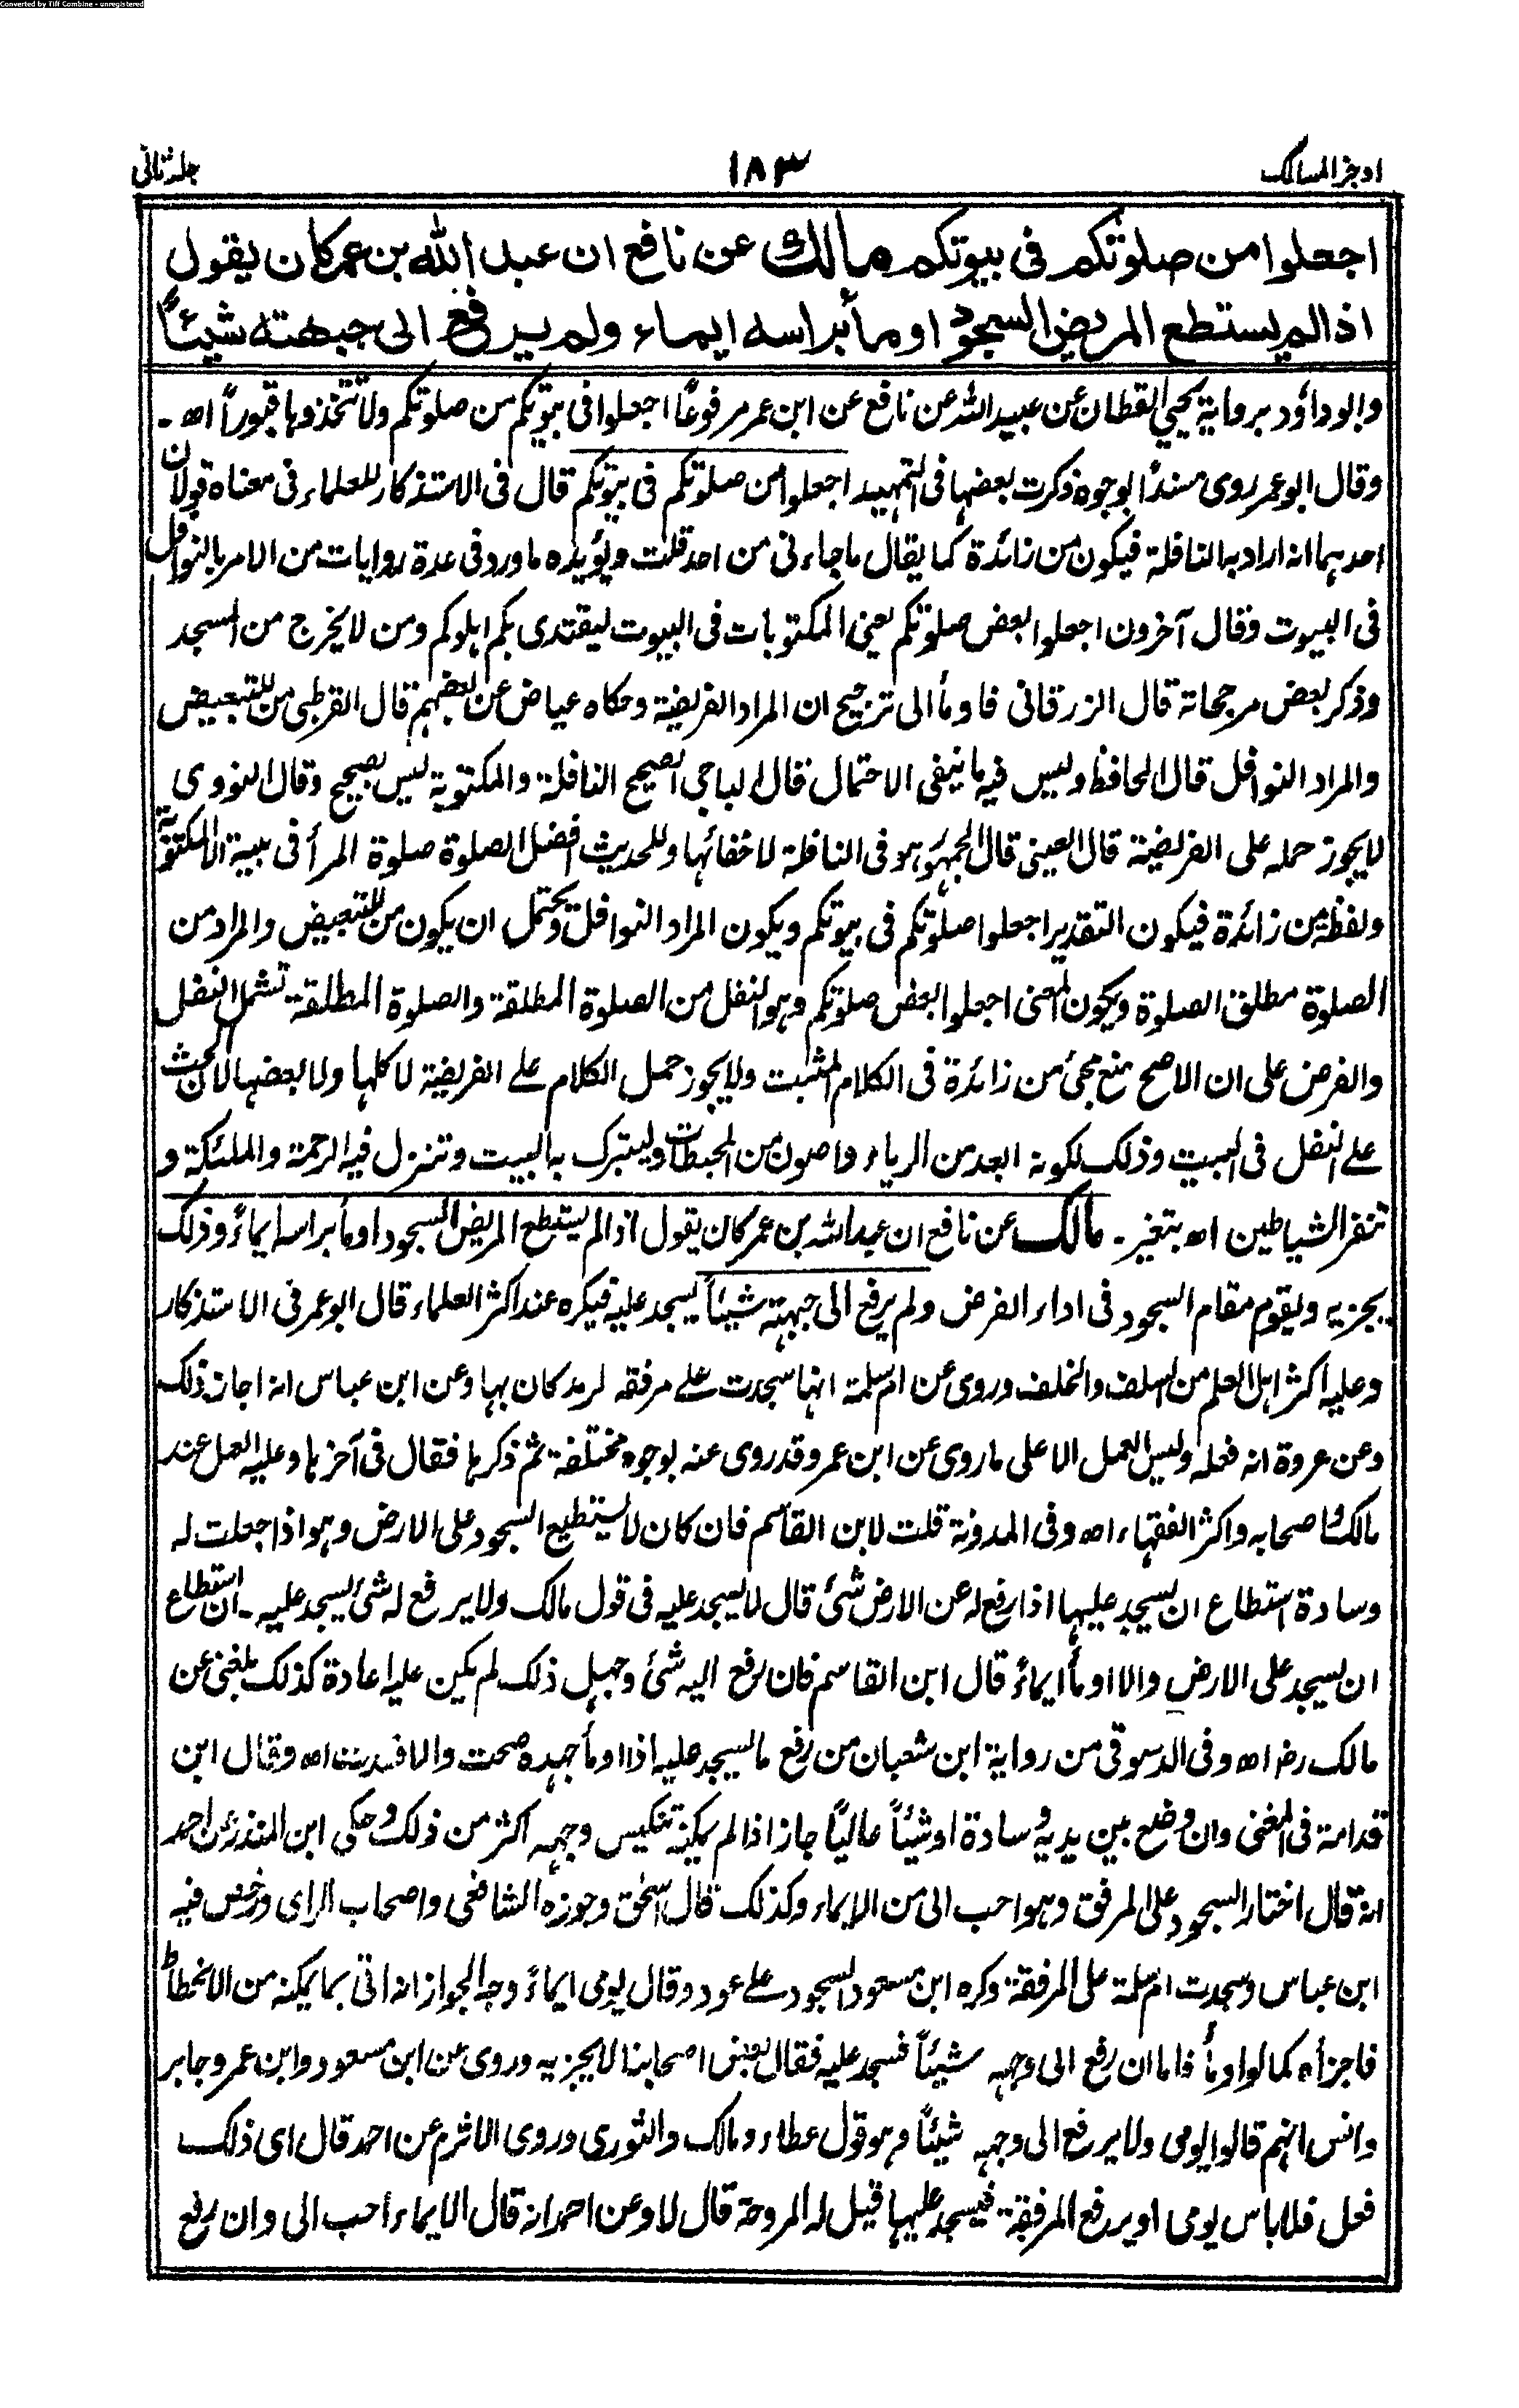 Converted by Tiff Combine - unregistered
اوجز المسالك
١٨٣
جلد ثانی
اجعلوا من صلوتكم فى بيوتكم مالك عن نافع ان عبد الله بن عمر كان يقول
اذا لم يستطع المريض السجود اومأ براسه ايماء ولم يرفع الى جبهته شيئاً
وابو داؤد برواية يحيي القطان عن عبيد الله عن نافع عن ابن عمر مرفوعاً اجعلوا فى بيوتكم من صلوتكم ولا تتخذوها قبوراً اھ۔
وقال ابو عمر روى مسنداً بوجوه ذكرت بعضها فى التمهيد اجعلوا من صلوتكم فى بيوتكم قال فى الاستذكار للعلماء فى معناه قولان
احدهما انه اراد به النافلة فيكون من زائدة كما يقال ما جاءنى من احد قلت ويؤيده ما ورد فى عدة روايات من الامر بالنوافل
فى البيوت وقال آخرون اجعلوا بعض صلوتكم يعنى المكتوبات فى البيوت ليقتدى بكم اهلوكم ومن لا يخرج من المسجد
وذكر بعض مرجحاته قال الزرقانى فاومأ الى ترجيح ان المراد الفريضة وحكاه عياض عن بعضهم قال القرطبى من للتبعيض
والمراد النوافل قال الحافظ وليس فيه ما ينفى الاحتمال قال الباجى الصحيح النافلة والمكتوبة ليس بصحيح وقال النووى
لا يجوز حمله على الفريضة قال العينى قال الجمهور هو فى النافلة لاخفائها وللحديث افضل الصلوة صلوة المرأ فى بيته الا المكتوبة
ولفظة من زائدة فيكون التقدير اجعلوا صلوتكم فى بيوتكم ويكون المراد النوافل ويحتمل ان يكون من للتبعيض والمراد من
الصلوة مطلق الصلوة ويكون المعنى اجعلوا بعض صلوتكم وهو النفل من الصلوة المطلقة والصلوة المطلقة تشمل النفل
والفرض على ان الاصح منع مجئ من زائدة فى الكلام المثبت ولا يجوز حمل الكلام علے الفريضة لا كلها ولا بعضها لان الحث
علے النفل فى البيت وذلك لكونه ابعد من الرياء واصون من المحبطات وليتبرك به البيت وتنزل فيه الرحمة والملئكة و
تنفر الشياطين اھ بتغير۔ مالك عن نافع ان عبد الله بن عمر كان يقول اذا لم يستطع المريض السجود اومأ براسه ايماءً وذلك
يجزيه ويقوم مقام السجود فى اداء الفرض ولم يرفع الى جبهته شيئاً يسجد عليه فيكره عند اكثر العلماء قال ابو عمر فى الاستذكار
وعليه اكثر اهل العلم من السلف والخلف وروى عن ام سلمة انها سجدت علے مرفقه لرمد كان بها وعن ابن عباس انه اجاز ذلك
وعن عروة انه فعله وليس العمل الا على ما روى عن ابن عمر وقد روى عنه بوجوه مختلفة ثم ذكرها فقال فى آخرها وعليه العمل عند
مالك واصحابه واكثر الفقهاء اھ وفى المدونة قلت لابن القاسم فان كان لا يستطيع السجود على الارض وهو اذا جعلت له
وسادة استطاع ان يسجد عليها اذا رفع له عن الارض شئ قال لا يسجد عليه فى قول مالك ولا يرفع له شئ يسجد عليه۔ ان استطاع
ان يسجد على الارض والا اومأ ايماءً قال ابن القاسم فان رفع اليه شئ وجهل ذلك لم يكن عليه اعادة كذلك بلغنى عن
مالك رض اھ وفى الدسوقى من رواية ابن شعبان من رفع ما يسجد عليه اذا اومأ جهده صحت والا فسدت اھ وقال ابن
قدامة فى المغنى وان وضع بين يديه وسادة او شيئاً عالياً جاز اذا لم يمكنه تنكيس وجهه اكثر من ذلك وحكى ابن المنذر عن احمد
انه قال اختار السجود على المرفق وهو احب الى من الايماء وكذلك قال اسحٰق وجوزه الشافعى واصحاب الراى ورخص فيه
ابن عباس وسجدت ام سلمة على المرفقة وكره ابن مسعود السجود علے عود وقال يومى ايماءً وجه الجواز انه اتى بما يمكنه من الانحطاط
فاجزأه كما لو اومأ فاما ان رفع الى وجهه شيئاً فسجد عليه فقال بعض اصحابنا لا يجزيه وروى عن ابن مسعود وابن عمر وجابر
وانس انهم قالوا يومى ولا يرفع الى وجهه شيئاً وهو قول عطاء ومالك والثورى وروى الاثرم عن احمد قال اى ذلك
فعل فلا باس يومى او يرفع المرفقة فيسجد عليها قيل له المروحة قال لا وعن احمد انه قال الايماء احب الى وان رفع